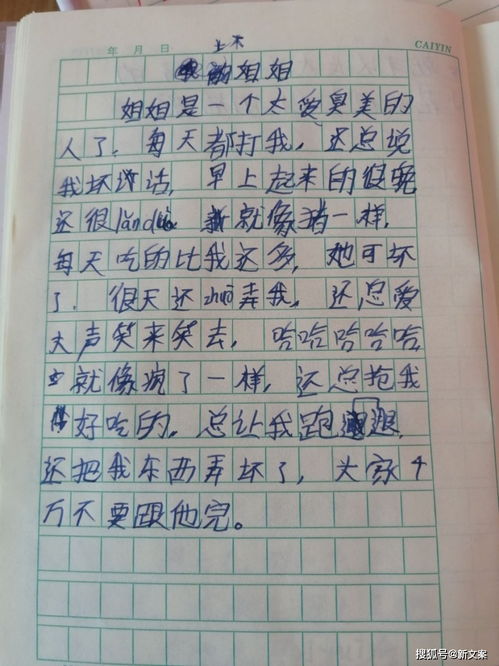 年 月 日 CAIYIN
上不
的姐姐
姐姐是一个太爱臭美的
人了，每天都打我，还总说
我坏话，早上起来的很晚
还很lǎnduò 就像猪一样，
每天吃的比我还多，她可坏
了，很天还zhuō弄我，还总爱
大声笑来笑去，哈哈哈哈哈，
就像疯了一样，还总抢我
好吃的，总让我跑退，
还把我东西弄坏了，大家千
万不要跟他完。
搜狐号@新文案